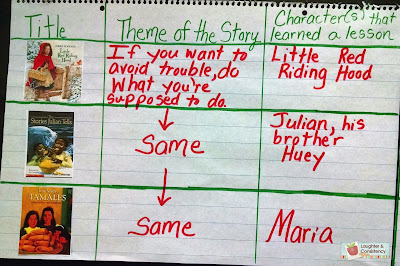 Title
Theme of the Story
Character(s) that
learned a lesson
Little Red
Riding Hood
If you want to
avoid trouble, do
what you're
supposed to do.
Little Red
Riding Hood
Stories Julian Tells
Same
Julian, his
brother
Huey
TAMALES
Same
Maria
Laughter &
Consistency